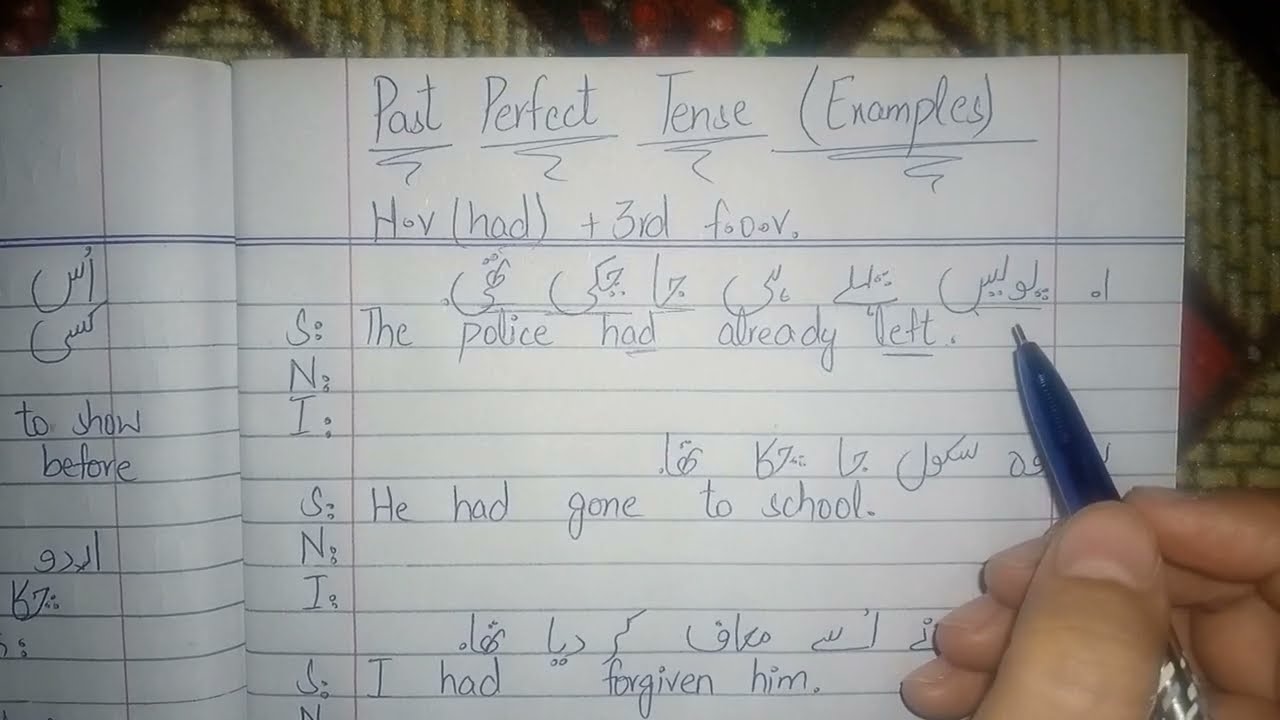 Past Perfect Tense (Examples)
H.v (had) + 3rd f.o.o.v.
ا۔ پولیس پہلے ہی جا چکی تھی۔
S: The police had already left.
N:
I:
وہ سکول جا چکا تھا۔
S: He had gone to school.
N:
I:
نے اُسے معاف کر دیا تھا۔
S: I had forgiven him.
N
اُس
کسی
to show
before
اردو
چکا